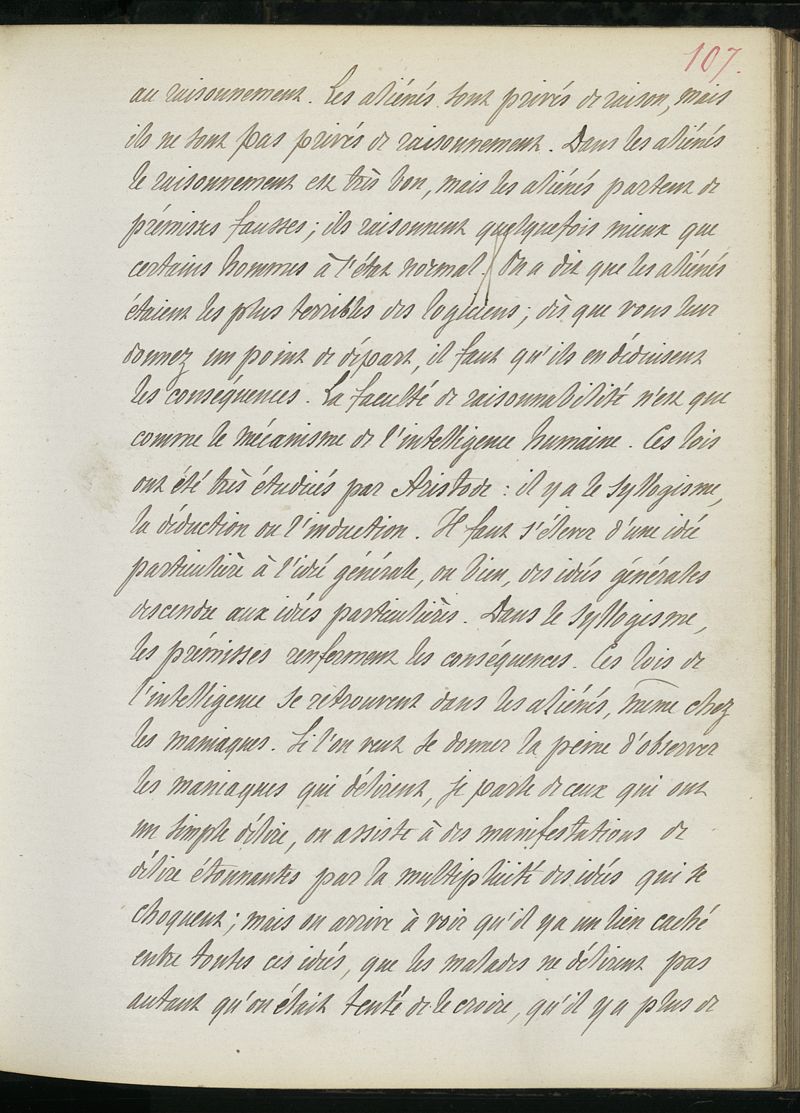 107.
au raisonnement. Les aliénés sont privés de raison, mais
ils ne sont pas privés de raisonnement. Dans les aliénés
le raisonnement est très bon, mais les aliénés partent de
prémisses fausses; ils raisonnent quelquefois mieux que
certains hommes à l'état normal. On a dit que les aliénés
étaient les plus terribles des logiciens; dès que vous leur
donnez un point de départ, il faut qu'ils en déduisent
les conséquences. La faculté de raisonnabilité n'est que
comme le mécanisme de l'intelligence humaine. Ces lois
ont été très étudiées par Aristote : il y a le syllogisme,
la déduction ou l'induction. Il faut s'élever d'une idée
particulière à l'idée générale, ou bien, des idées générales
descendre aux idées particulières. Dans le syllogisme,
les prémisses renferment les conséquences. Ces lois de
l'intelligence se retrouvent dans les aliénés, même chez
les maniaques. Si l'on veut se donner la peine d'observer
les maniaques qui délirent, je parle de ceux qui ont
un simple délire, on assiste à des manifestations de
délire étonnantes par la multiplicité des idées qui se
choquent; mais on arrive à voir qu'il y a un lien caché
entre toutes ces idées, que les malades ne délirent pas
autant qu'on était tenté de le croire, qu'il y a plus de